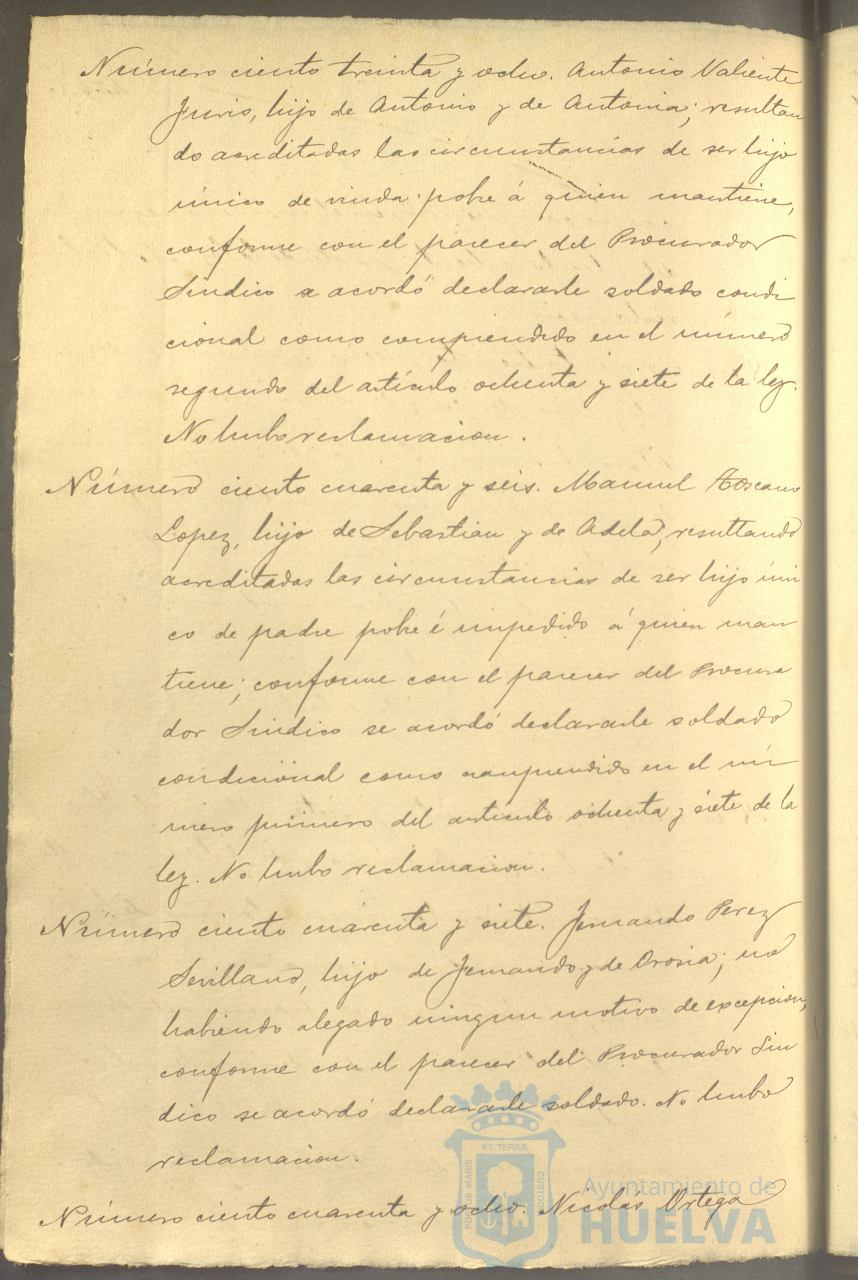 Número ciento treinta y ocho. Antonio Valiente
hijo de Antonio y de Antonia; resultan
do acreditadas las circunstancias de ser hijo
único de viuda pobre á quien mantiene,
conforme con el parecer del Procurador
Síndico se acordó declararle soldado condi
cional como comprendido en el número
segundo del artículo ochenta y siete de la ley.
No hubo reclamacion.
Número ciento cuarenta y seis. Manuel Toscano
Lopez, hijo de Sebastian y de Adela, resultando
acreditadas las circunstancias de ser hijo úni
co de padre pobre é impedido á quien man
tiene; conforme con el parecer del Procura
dor Sindico se acordó declararle soldado
condicional como comprendido en el nú
mero primero del artículo ochenta y siete de la
ley. No hubo reclamacion.
Número ciento cuarenta y siete. Fernando Perez
Sevillano, hijo de Fernando y de Orosia; no
habiendo alegado ningun motivo de excepcion,
conforme con el parecer del Procurador Sín
dico se acordó declararle soldado. No hubo
reclamacion.
Número ciento cuarenta y ocho. Nicolás Ortega
ET TERRÆ
PORTUS MARIS
CUSTODIA
Ayuntamiento de
HUELVA